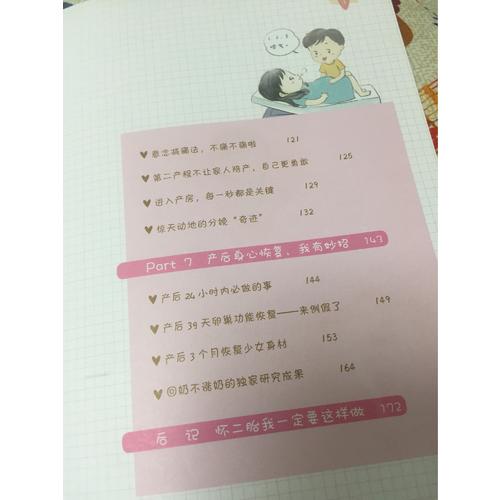 1、2、3
♥ 意念减痛法，不痛不痛啦 121
♥ 第二产程不让家人陪产，自己更勇敢 125
♥ 进入产房，每一秒都是关键 129
♥ 惊天动地的分娩“奇迹” 132
Part 7 产后身心恢复，我有妙招 143
♥ 产后24小时内必做的事 144
♥ 产后39天卵巢功能恢复——来例假了 149
♥ 产后3个月恢复少女身材 153
♥ 回奶不涨奶的独家研究成果 164
后 记 怀二胎我一定要这样做 172